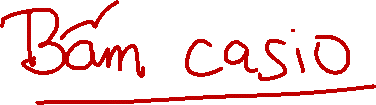 Bấm casio